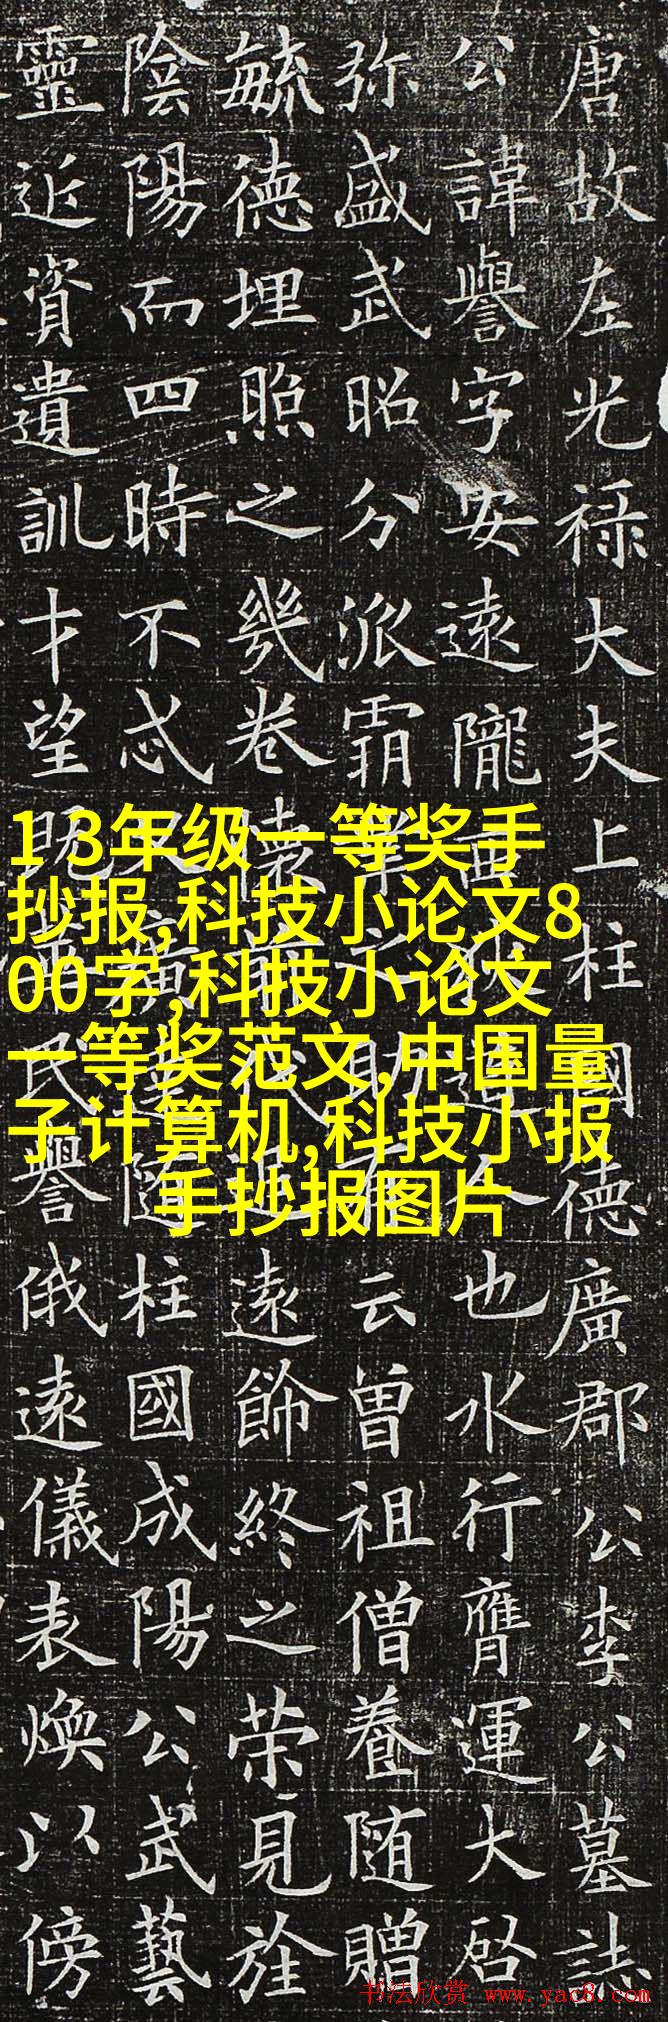 唐故左光禄大夫上柱國德廣郡公李公墓誌
公諱譽字安遠隴西狄道人也水行膺運大啓
弥盛武昭分派霸之助云曾祖僧養随贈
毓德埋照之幾卷懷遠飾終之荣見旌
陰陽而四時不忒廣随柱國成陽公武藝
靈近資遺訓才望既民譽俄遠儀表煥以傍
1 3年级一等奖手
抄报,科技小论文8
00字,科技小论文
一等奖范文,中国量
子计算机,科技小报
手抄报图片
书法欣赏 www.yac8.com